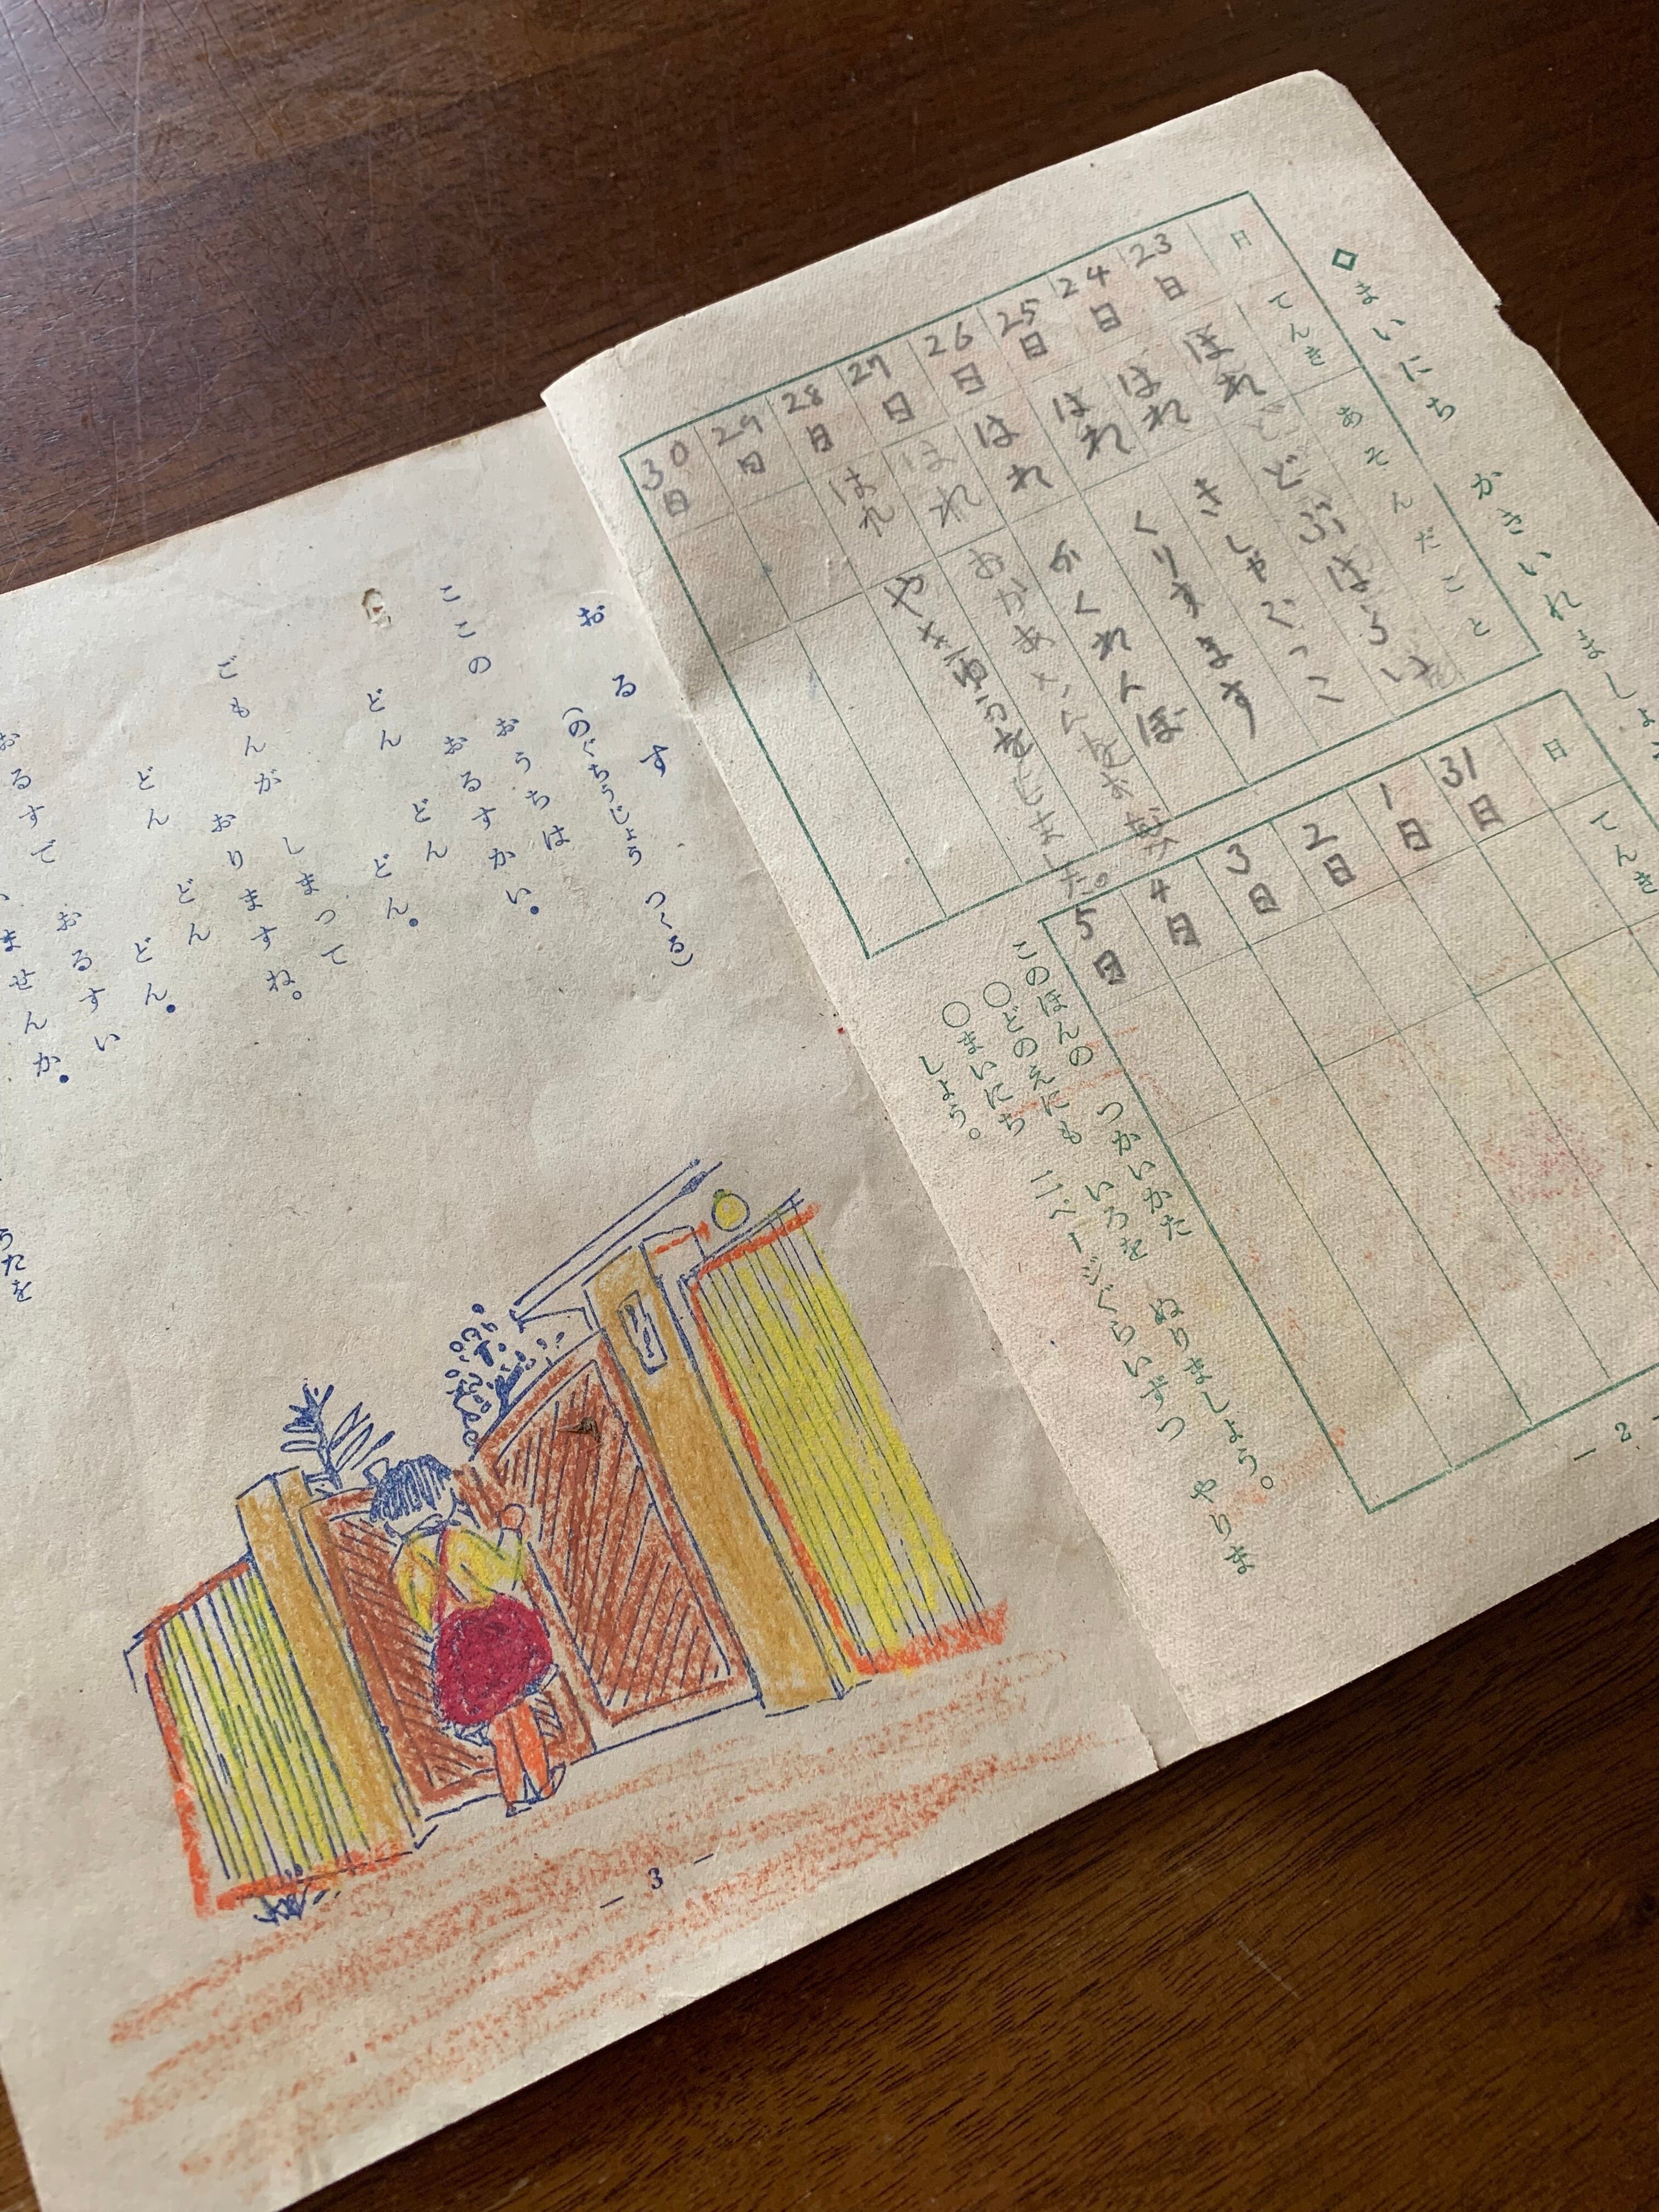 ◇まいにち かきいれましょう
日 てんき あそんだこと
23日 はれ どぶはらい
24日 はれ きしゃごっこ
25日 はれ くりすます
26日 はれ かくれんぼ
27日 はれ
28日 はれ やきゅうをしました。
29日
30日
日 てんき
31日
1日
2日
3日
4日
5日
このほんの つかいかた
○どのえにも いろを ぬりましょう。
○まいにち 二ページぐらいずつ やりま
しょう。
— 2
おるす
(のぐちうじょう つくる)
ここの おうちは
おるすかい。
どん どん どん。
ごもんが しまって
おりますね。
どん どん どん。
おるすで おるすい
ませんか。
うたを
— 3 —